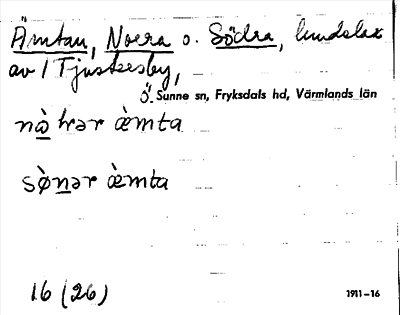 Ämtan, Norra o. Södra, hemdelar
av 1 Tjustersby,
Ö. Sunne sn, Fryksdals hd, Värmlands län
nò̱ hər æ̀mta
sø̀ṉər æ̀mta
16 (26)
1911-16